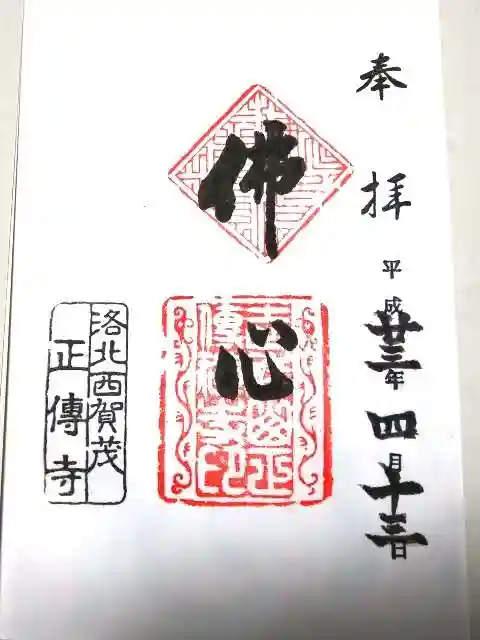 奉拝
平成廿三年四月十三日
佛心
洛北西賀茂
正傳寺